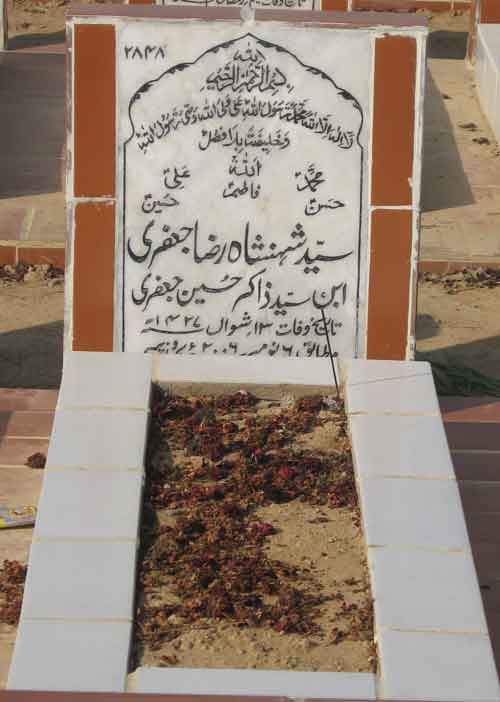 ۲۸۴۸
بسم الله الرحمن الرحیم
لا اله الا الله محمد رسول الله علی ولی الله وصی رسول الله
وخلیفته بلا فصل
الله
محمد علی
فاطمہ
حسن حسین
سید شہنشاہ رضا جعفری
ابن سید ذاکر حسین جعفری
تاریخ وفات ۱۳ شوال ۱۴۲۷ھ
مطابق ۶ نومبر ۲۰۰۶ء روز پیر